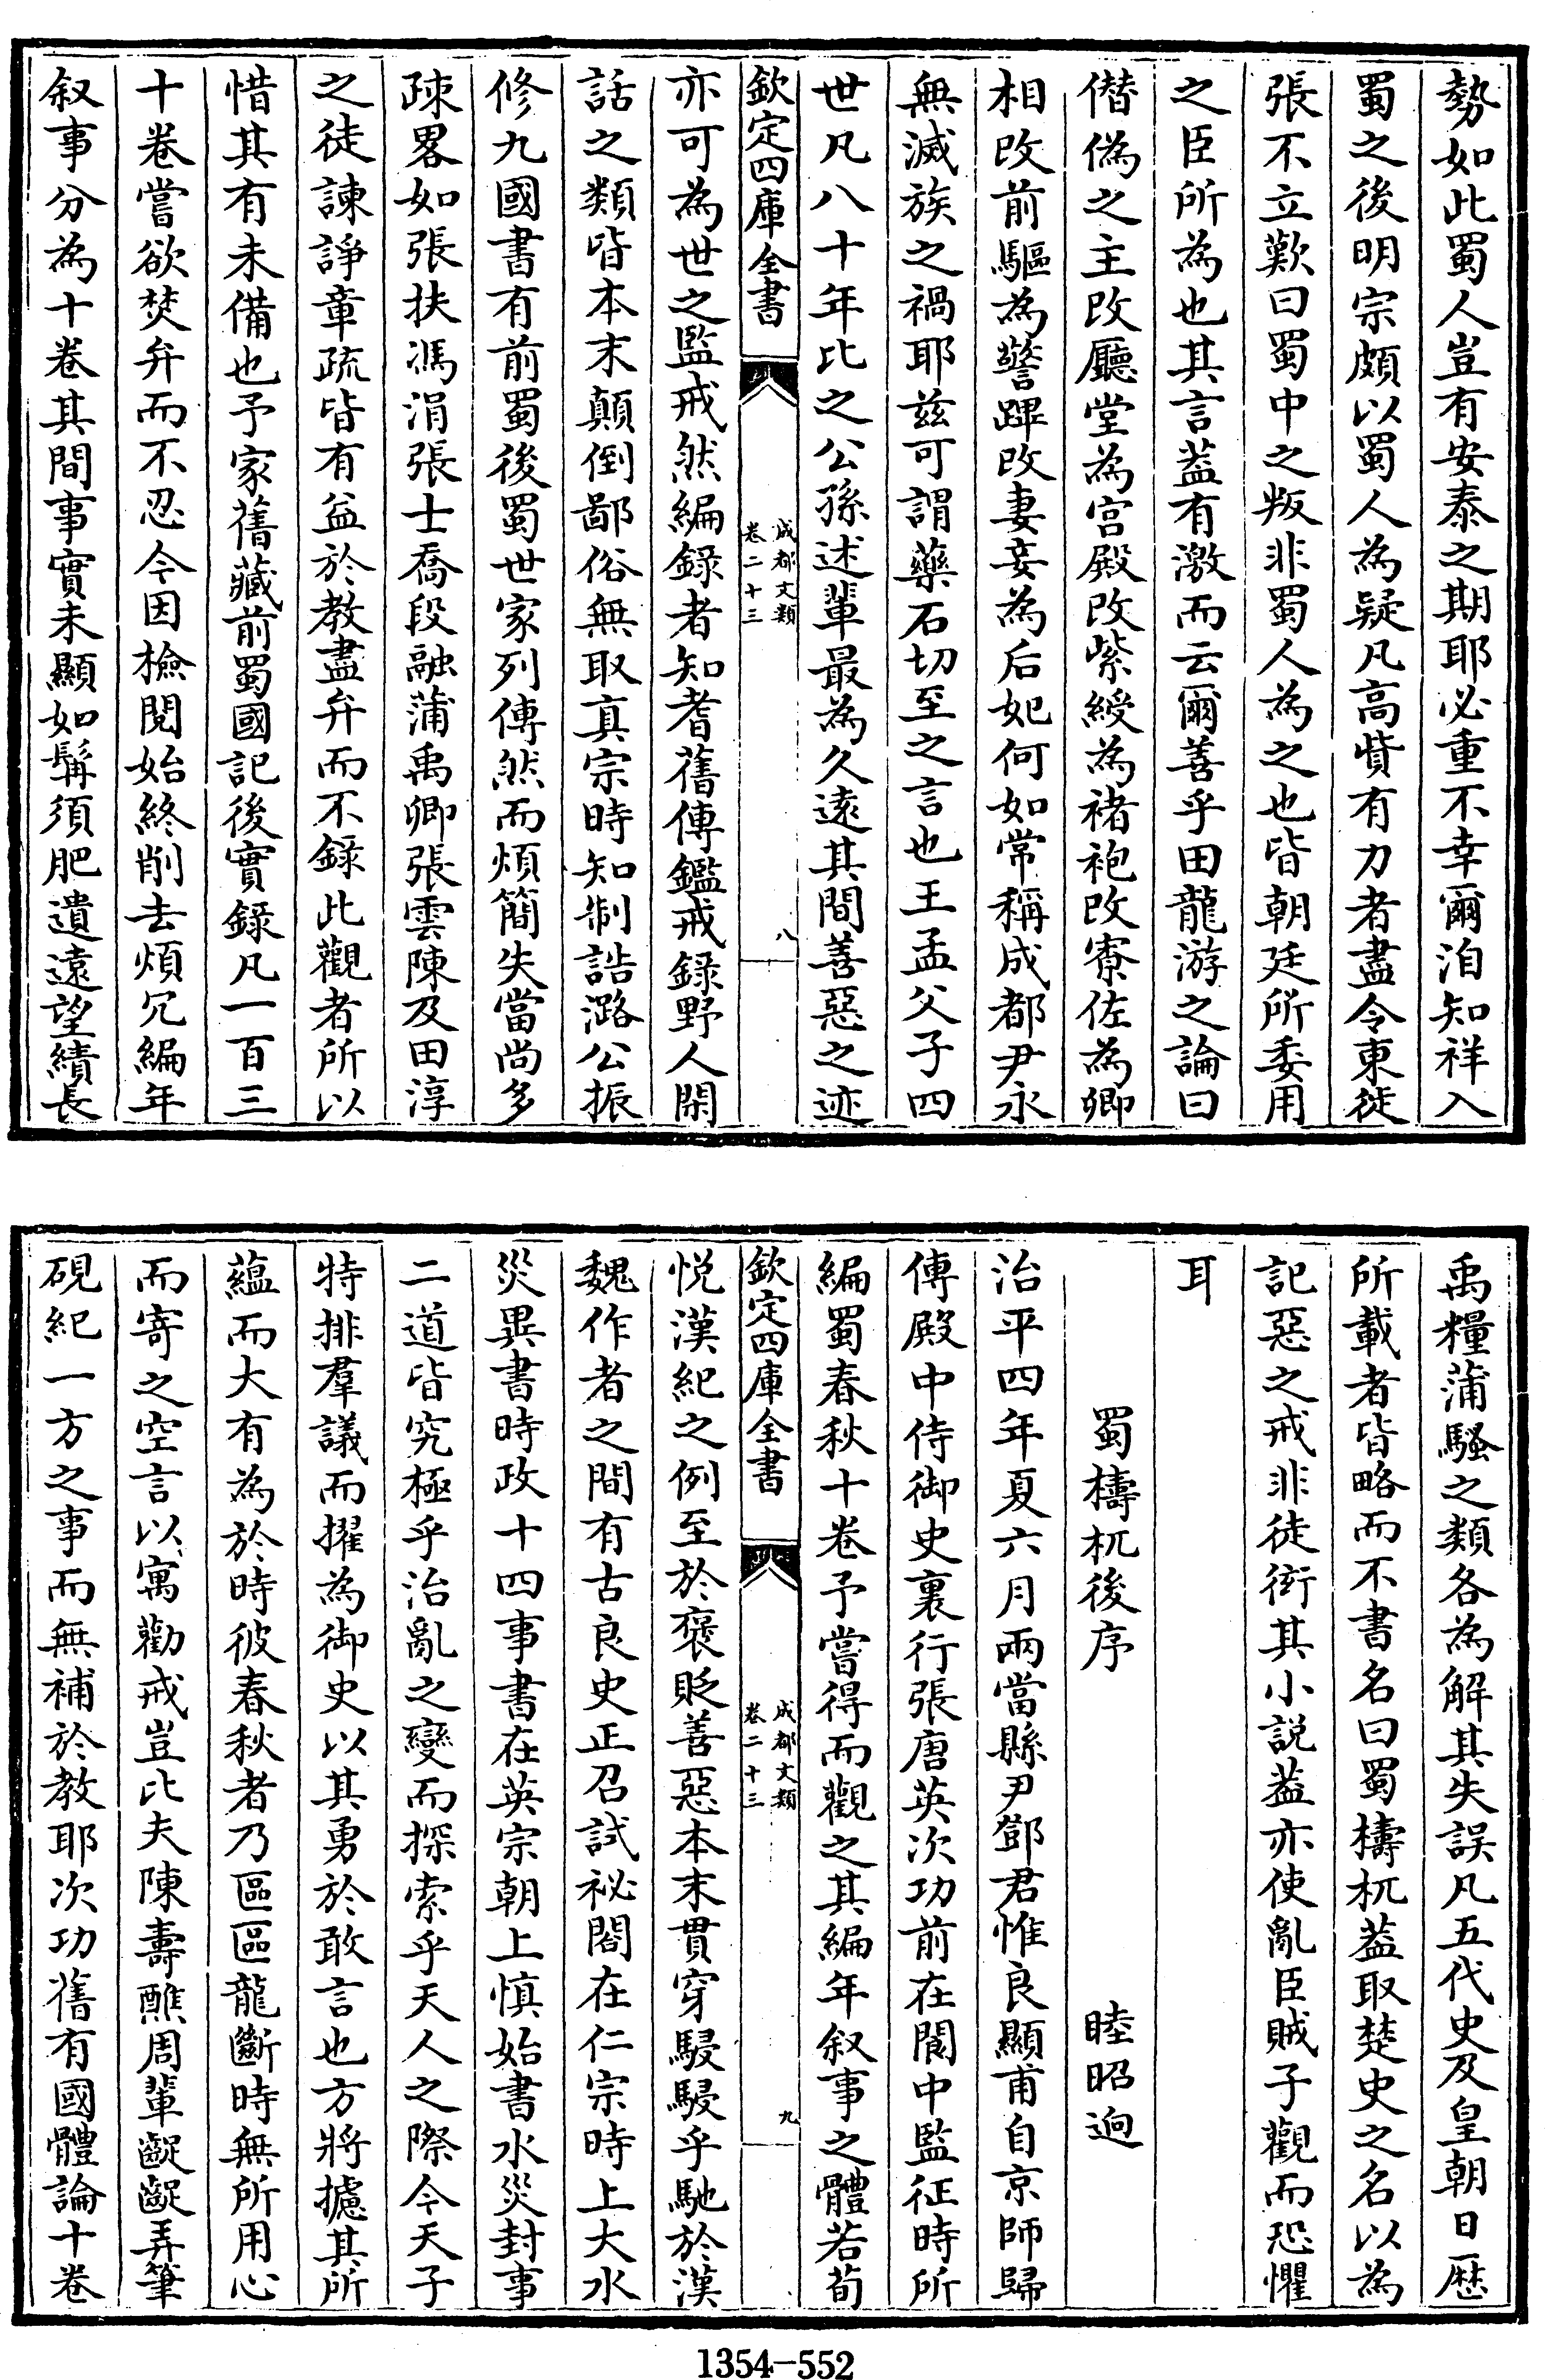 勢如此蜀人豈有安泰之期耶必重不幸爾洎知祥入
蜀之後明宗頗以蜀人為疑凡高貲有力者盡令東徙
張不立歎曰蜀中之叛非蜀人為之也皆朝廷所委用
之臣所為也其言葢有激而云爾善乎田龍游之論曰
僣偽之主改廳堂為宮殿改紫綬為褚袍改寮佐為卿
相改前驅為警蹕改妻妾為后妃何如常稱成都尹永
無滅族之禍耶兹可謂藥石切至之言也王孟父子四
世凡八十年比之公孫述輩最為久遠其間善惡之迹
欽定四庫全書
成都文類
卷二十三
八
亦可為世之監戒然編錄者知耆舊傳鑑戒録野人閑
話之類皆本末顛倒鄙俗無取真宗時知制誥潞公振
修九國書有前蜀後蜀世家列傳然而煩簡失當尚多
疎畧如張扶馮涓張士喬段融蒲禹卿張雲陳及田淳
之徒諫諍章疏皆有益於教盡弁而不錄此觀者所以
惜其有未備也予家舊藏前蜀國記後實錄凡一百三
十卷嘗欲焚弁而不忍今因檢閱始終削去煩冗編年
叙事分為十卷其間事實未顯如髯須肥遺遠望績長
禹糧蒲騷之類各為解其失誤凡五代史及皇朝日歷
所載者皆略而不書名曰蜀檮杌葢取楚史之名以為
記惡之戒非徒衒其小説葢亦使亂臣賊子觀而恐懼
耳
蜀檮杌後序 睦昭逈
治平四年夏六月兩當縣尹鄧君惟良顯甫自京師歸
傳殿中侍御史裏行張唐英次功前在閬中監征時所
編蜀春秋十卷予嘗得而觀之其編年叙事之體若荀
欽定四庫全書
成都文類
卷二十三
九
悦漢紀之例至於褒貶善惡本末貫穿駸駸乎馳於漢
魏作者之間有古良史正召試祕閣在仁宗時上大水
災異書時政十四事書在英宗朝上慎始書水災封事
二道皆究極乎治亂之變而探索乎天人之際今天子
特排羣議而擢為御史以其勇於敢言也方將攄其所
蘊而大有為於時彼春秋者乃區區龍斷時無所用心
而寄之空言以寓勸戒豈比夫陳壽醮周輩齪齪弄筆
硯紀一方之事而無補於教耶次功舊有國體論十卷
1354-552